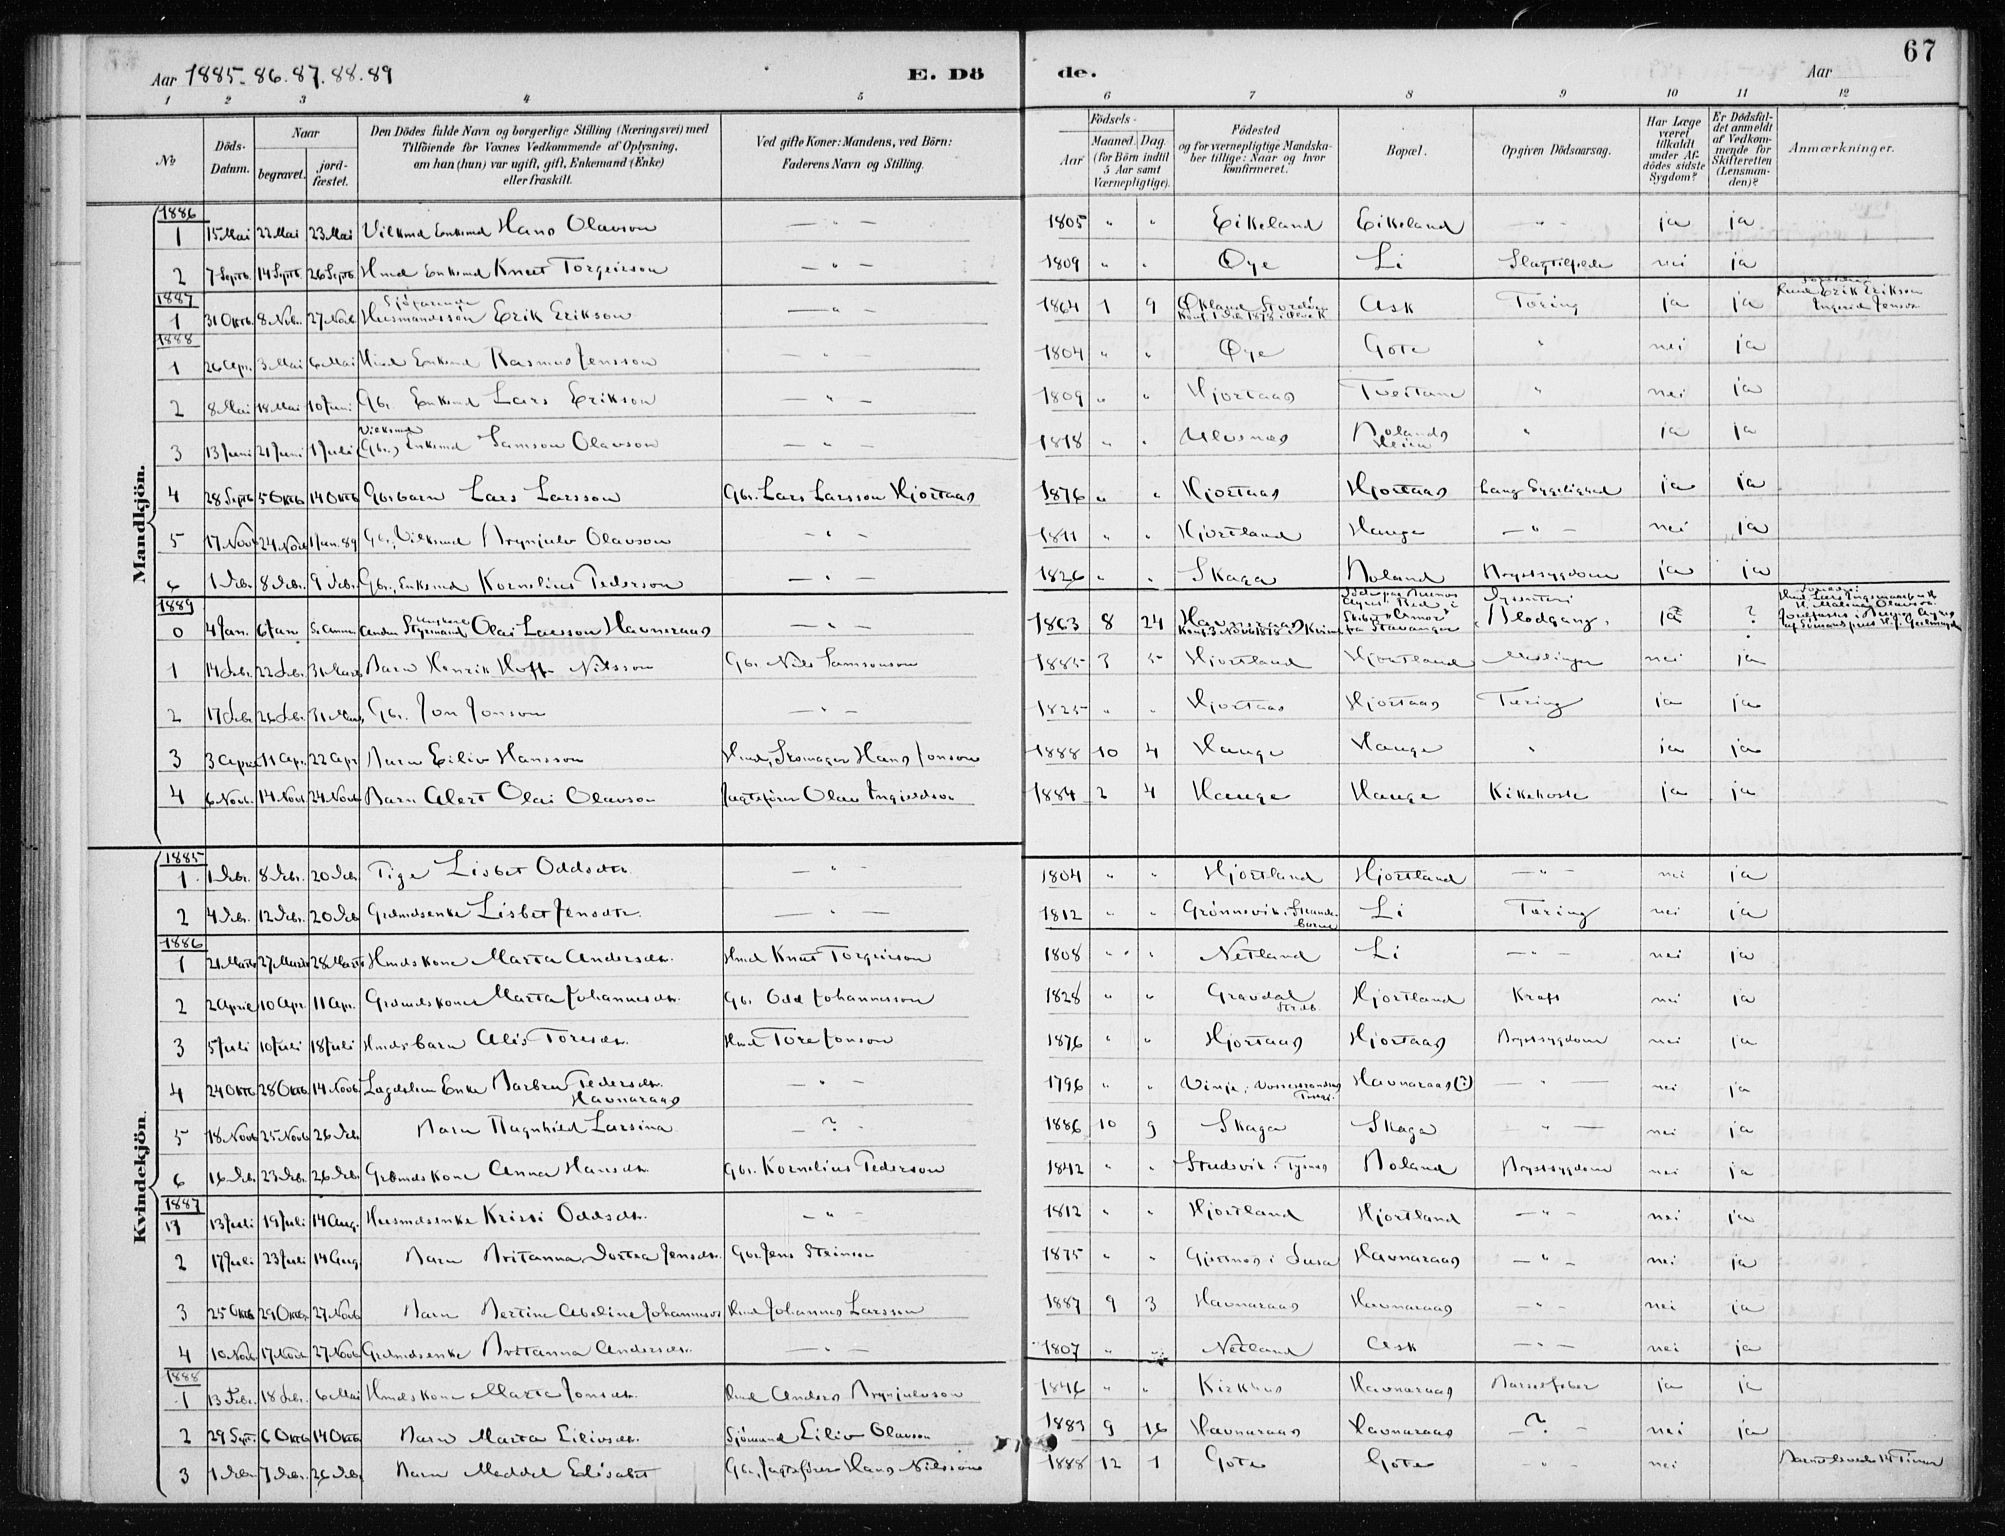 67
Aar 1885. 86. 87. 88. 89 E. Dö de. Aar
1 2 3 4 5 6 7 8 9 10 11 12
No
Döds-Datum.
Naar
begravet.
jord-fæstet.
Den Dödes fulde Navn og borgerlige Stilling (Næringsvei) med
Tilföiende for Voxnes Vedkommende af Oplysning,
om han (hun) var ugift, gift, Enkemand (Enke)
eller fraskilt.
Ved gifte Koner: Mandens, ved Börn:
Faderens Navn og Stilling.
Födsels-
Aar
Maaned. Dag.
(for Börn indtil
5 Aar samt
Værnepligtige).
Födested
og for værnepligtige Mandska-
ber tillige: Naar og hvor
konfirmeret.
Bopæl.
Opgiven Dödsaarsag.
Har Læge
været
tilkaldt
under Af-
dödes sidste
Sygdom?
Er Dödsfal-
det anmeldt
af Vedkom-
mende for
Skifteretten
(Lensman-
den)?
Anmærkninger.
Mandkjön.
1886
1 15 Mai 22 Mai 23 Mai Vilkmd Enkemd Hans Olavson — " — 1805 " " Eikeland Eikeland — " — ja ja
2 7 Septb. 14 Septb. 26 Septb. Hmd Enkemd Knut Torgeirson — " — 1809 " " Øye Li Slagtilfelde nei ja
1887
1 31 Oktb. 8 Novb. 27 Novb. Husmandssøn Erik Erikson — " — 1864 1 9 Ask Tæring ja ja Erik Erikson
1888
1 26 Apr. 3 Mai 6 Mai Hmd Enkemd Rasmus Jensson — " — 1804 " " Øye Gote " nei ja
2 8 Mai 18 Mai 10 Juni Gbr. Enkemd Lars Erikson — " — 1809 " " Hjortaas Tveitane " nei ja
3 13 Juni 21 Juni 1 Juli Vilkmd (Gbr.) Enkemd Samson Olavson — " — 1818 " " Ulvsnes " ja ja
4 28 Septb 5 Oktb 14 Oktb Gbrbarn Lars Larsson Gbr. Lars Larsson Hjortaas 1876 " " Hjortaas Hjortaas Lang Sygelighed ja ja
5 17 Novb 24 Novb 1 Jan. 89 Gbr, Vilkemd Brynjulv Olavson — " — 1811 " " Hjortland Hauge — " — nei ja
6 1 Debr. 8 Debr. 9 Debr. Gbr, Enkemd Kornelius Pederson — " — 1826 " " Skaga Boland Brystsygdom ja ja
1889
0 4 Jan. 6 Jan Anden Styrmand Olai Larsson Havneraas — " — 1863 8 24 Havneraas Blodgang ja ?
1 14 Febr. 22 Febr. 31 Marts Barn Henrik Hoff Nilsson Gbr. Nils Samsonson 1885 3 5 Hjortland Hjortland Meslinger nei ja
2 17 Febr. 26 Febr. 31 Marts Gbr. Jon Jonson — " — 1825 " " Hjortaas Hjortaas Tæring ja ja
3 3 April 11 Apr. 22 Apr Barn Eiliv Hansson Hmd, Skomager Hans Jonson 1888 10 4 Hauge Hauge " ja ja
4 6 Novb. 14 Novb. 24 Novb Barn Albert Olai Olavson Jagtefører Olav Ingjeldson 1884 2 4 Hauge Hauge Kikehoste ja ja
Kvindekjön.
1885
1 1 Debr. 8 Debr. 20 Debr Pige Lisbet Oddsdtr. — " — 1804 " " Hjortland Hjortland — " — nei ja
2 4 Debr. 12 Debr. 20 Debr Grdmdsenke Lisbet Jensdtr. — " — 1812 " " Grønnsvik i Strandebarm Li Tæring nei ja
1886
1 21 Marts 27 Marts 28 Marts Hmds Kone Marta Andersdtr. Hmd Knut Torgeirson 1808 " " Netland Li — " — nei ja
2 2 April 10 Apr. 11 Apr. Grdmds kone Marta Johannesdtr. Gbr. Odd Johannesson 1828 " " Gravdal Strdb. Hjortland Kræft nei ja
3 5 Juli 10 Juli 18 Juli Hmds barn Alis Toresdtr. Hmd Tore Jonson 1876 " " Hjortaas Hjortaas Brystsygdom nei ja
4 24 Oktb 28 Oktb 14 Novb. Lægdslem Enke Barbra Pedersdtr. Havnaraas — " — 1796 " " Vinje, Vossestranden Havnaraas (?) — " — nei ja
5 18 Novb 25 Novb 26 Debr Barn Ragnhild Larsina — ? — 1886 10 9 Skaga Skaga — " — nei ja
6 16 Debr 23 Debr. 26 Debr Grdmds Kone Anna Hansdtr. Gbr. Kornelius Pederson 1842 " " Stedsvik i Tysnes Boland Brystsygdom nei ja
1887
1 13 Juli 19 Juli 14 Aug. Husmdsenke Kristi Oddsdtr. — " — 1812 " " Hjortland Hjortland — " — nei ja
2 17 Juli 23 Juli 14 Aug. Barn Britanna Dortea Jensdtr. Gbr Jens Steinson 1875 " " Havnaraas — " — nei ja
3 25 Oktb 29 Oktb. 27 Novb Barn Bertine Abeline Johannesdtr Hmd Johannes Larsson 1887 9 3 Havnaraas Havnaraas — " — nei ja
4 10 Novb 17 Novb 27 Novb Grdmdsenke Britanna Andersdtr. — " — 1807 " " Netland Ask — " — nei ja
1888
1 13 Febr. 18 Febr. 6 Mai Hmds kone Marta Jonsdtr. Hmd Anders Brynjulvson 1846 " " Kirkhus Havnaraas Barselfeber ja ja
2 29 Sept. 6 Oktb 14 Oktb. Barn Marta Eilivsdtr. Sjømand Eiliv Olavson 1883 9 16 Havnaraas Havnaraas — ? — nei ja
3 1 Debr 7 Debr. 26 Debr Barn Meddel Elisabet Gbr, Jagtefører Hans Nilsson 1888 12 1 Gote Gote — " — nei Barnet levede 14 Timer